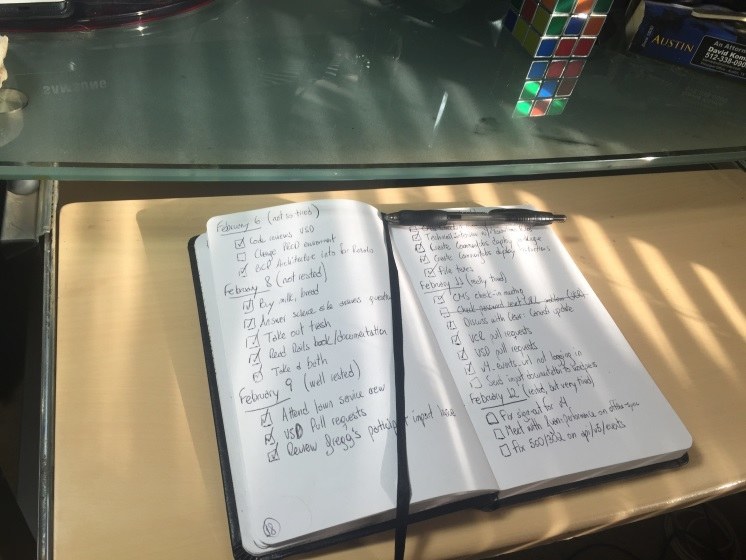 AUSTIN
An Attorne
David Kom
512-338-090
February 6 (not so tired)
Code reviews VSD
Change PROD environment
BCP Architecture lists for
February 8 (not rested)
Buy milk, bread
Answer science
Take out trash
Read Rails book/documentation
Take a bath
February 9 (well rested)
Attend town service new
VSD Pull requests
Review Gregg's participant import issue
18
Create Communities deploy package
Create Communities deploy
File taxes
February 11 (really tired)
CMS check-in meeting
Check password reset
Discuss with Cesar update
VCR pull requests
VSD pull requests
V4 events url not logging in
Send input documentation to
February 12 (rested, but very tired)
Fix segment for v4
Meet with performance on
Fix 500/352 on api/v5/events